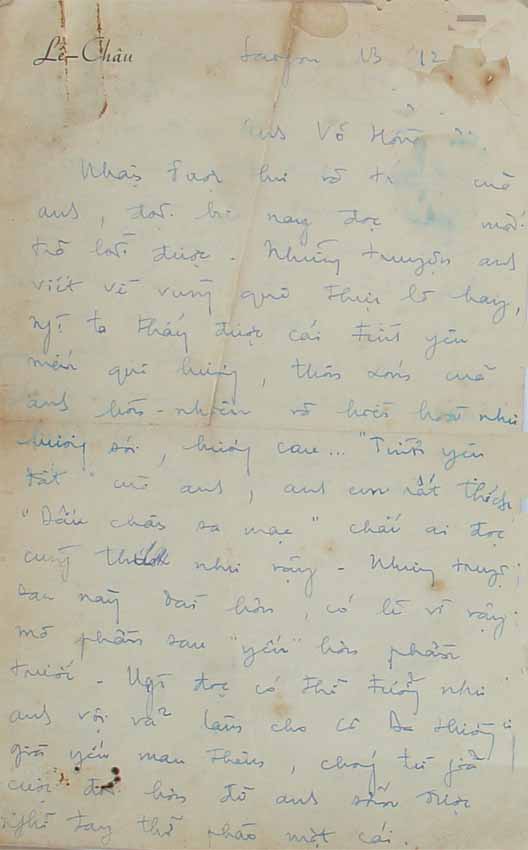 Lê-Châu
Saigon 13 12
Anh Võ Hồng
Nhận được thư và tr của
anh, đợi hôm nay đọc mới
trả lời được. Những truyện anh
viết về vùng quê thực là hay,
người ta thấy được cái tình yêu
mến quê hương, thôn xóm của
anh hồn-nhiên và
hương sói, hương cau... "Tình yêu
đất" của anh, anh em rất thích,
"Dấu chân sa mạc" chắc ai đọc
cũng thích như vậy - Nhưng truyện
sau này dài hơn, có lẽ vì vậy
mà phần sau "yếu" hơn phần
trước - Người đọc có thể tưởng như
anh vội vã làm cho cô Dạ Hương
già yếu mau thêm, chóng từ giã
cuộc đời hơn để anh sớm được
nghỉ tay thở phào một cái.